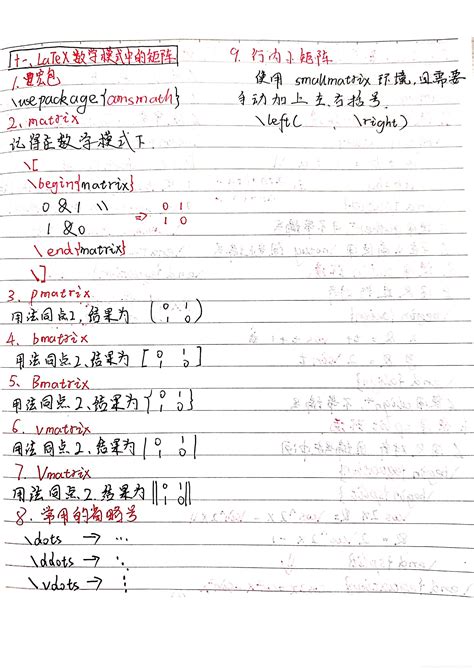 十一、LaTeX数学模式中的矩阵
1. 宏包
\usepackage{amsmath}
2. matrix
记得在数学模式下
\[
\begin{matrix}
0 & 1 \\
1 & 0
⇒ 0 1
1 0
\end{matrix}
\]
3. pmatrix
用法同点2,结果为 (0 1
1 0)
4. bmatrix
用法同点2、结果为 [0 1
1 0]
5. Bmatrix
用法同点2、结果为 {0 1
1 0}
6. vmatrix
用法同点2、结果为 |0 1
1 0|
7. Vmatrix
用法同点2、结果为 ||0 1
1 0||
8. 常用的省略号
\dots → …
\ddots → ⋱
\vdots → ⋮
9. 行内小矩阵
使用 smallmatrix 环境,且需要
手动加上左、右括号.
\left( \right)